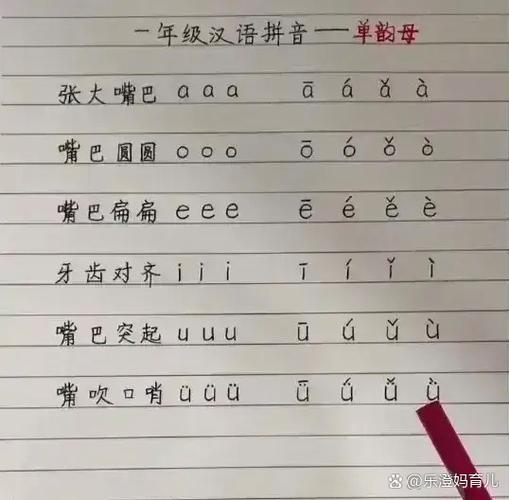 一年级汉语拼音——单韵母
张大嘴巴 a a a ā á ǎ à
嘴巴圆圆 o o o ō ó ǒ ò
嘴巴扁扁 e e e ē é ě è
牙齿对齐 i i i ī í ǐ ì
嘴巴突起 u u u ū ú ǔ ù
嘴吹口哨 ü ü ü ǖ ǘ ǚ ǜ
乐澄妈育儿